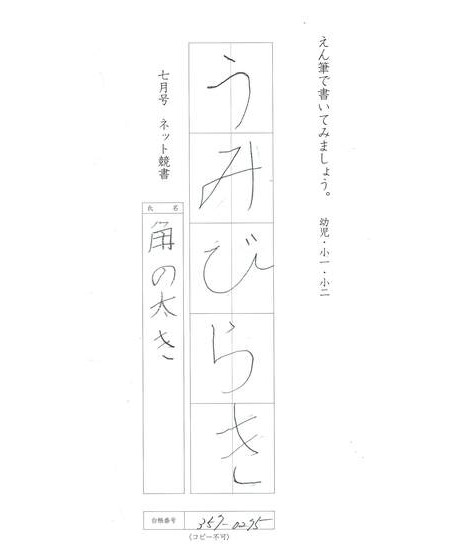 えん筆で書いてみましょう。 幼児・小一・小二
うみびらき
七月号 ネット競書
氏 名
角の太き
台帳番号 359-0295
(コピー不可)